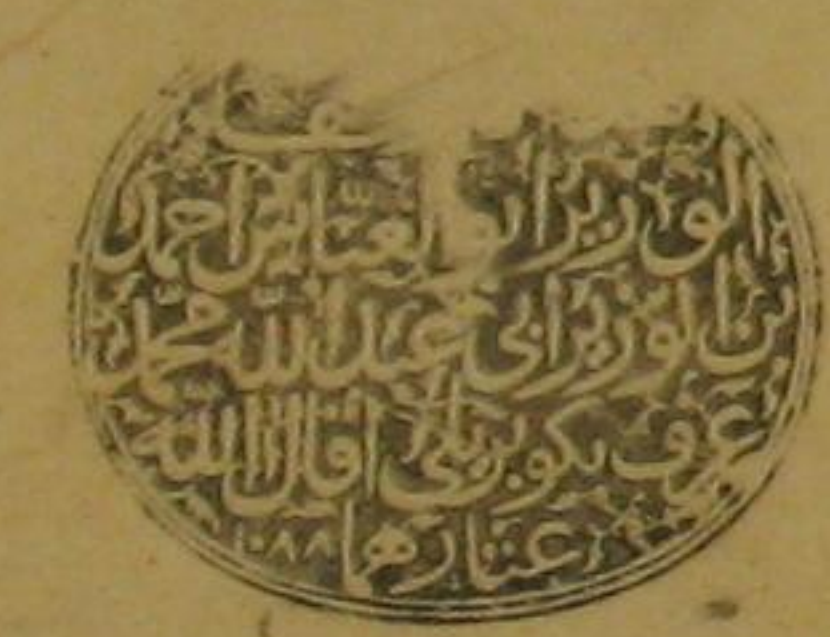 الوزير ابو العبّاس احمد
بن الوزير ابي عبد الله محمّد
عرف بكوبريلي اقال الله
عثارهما ١٠٨٨